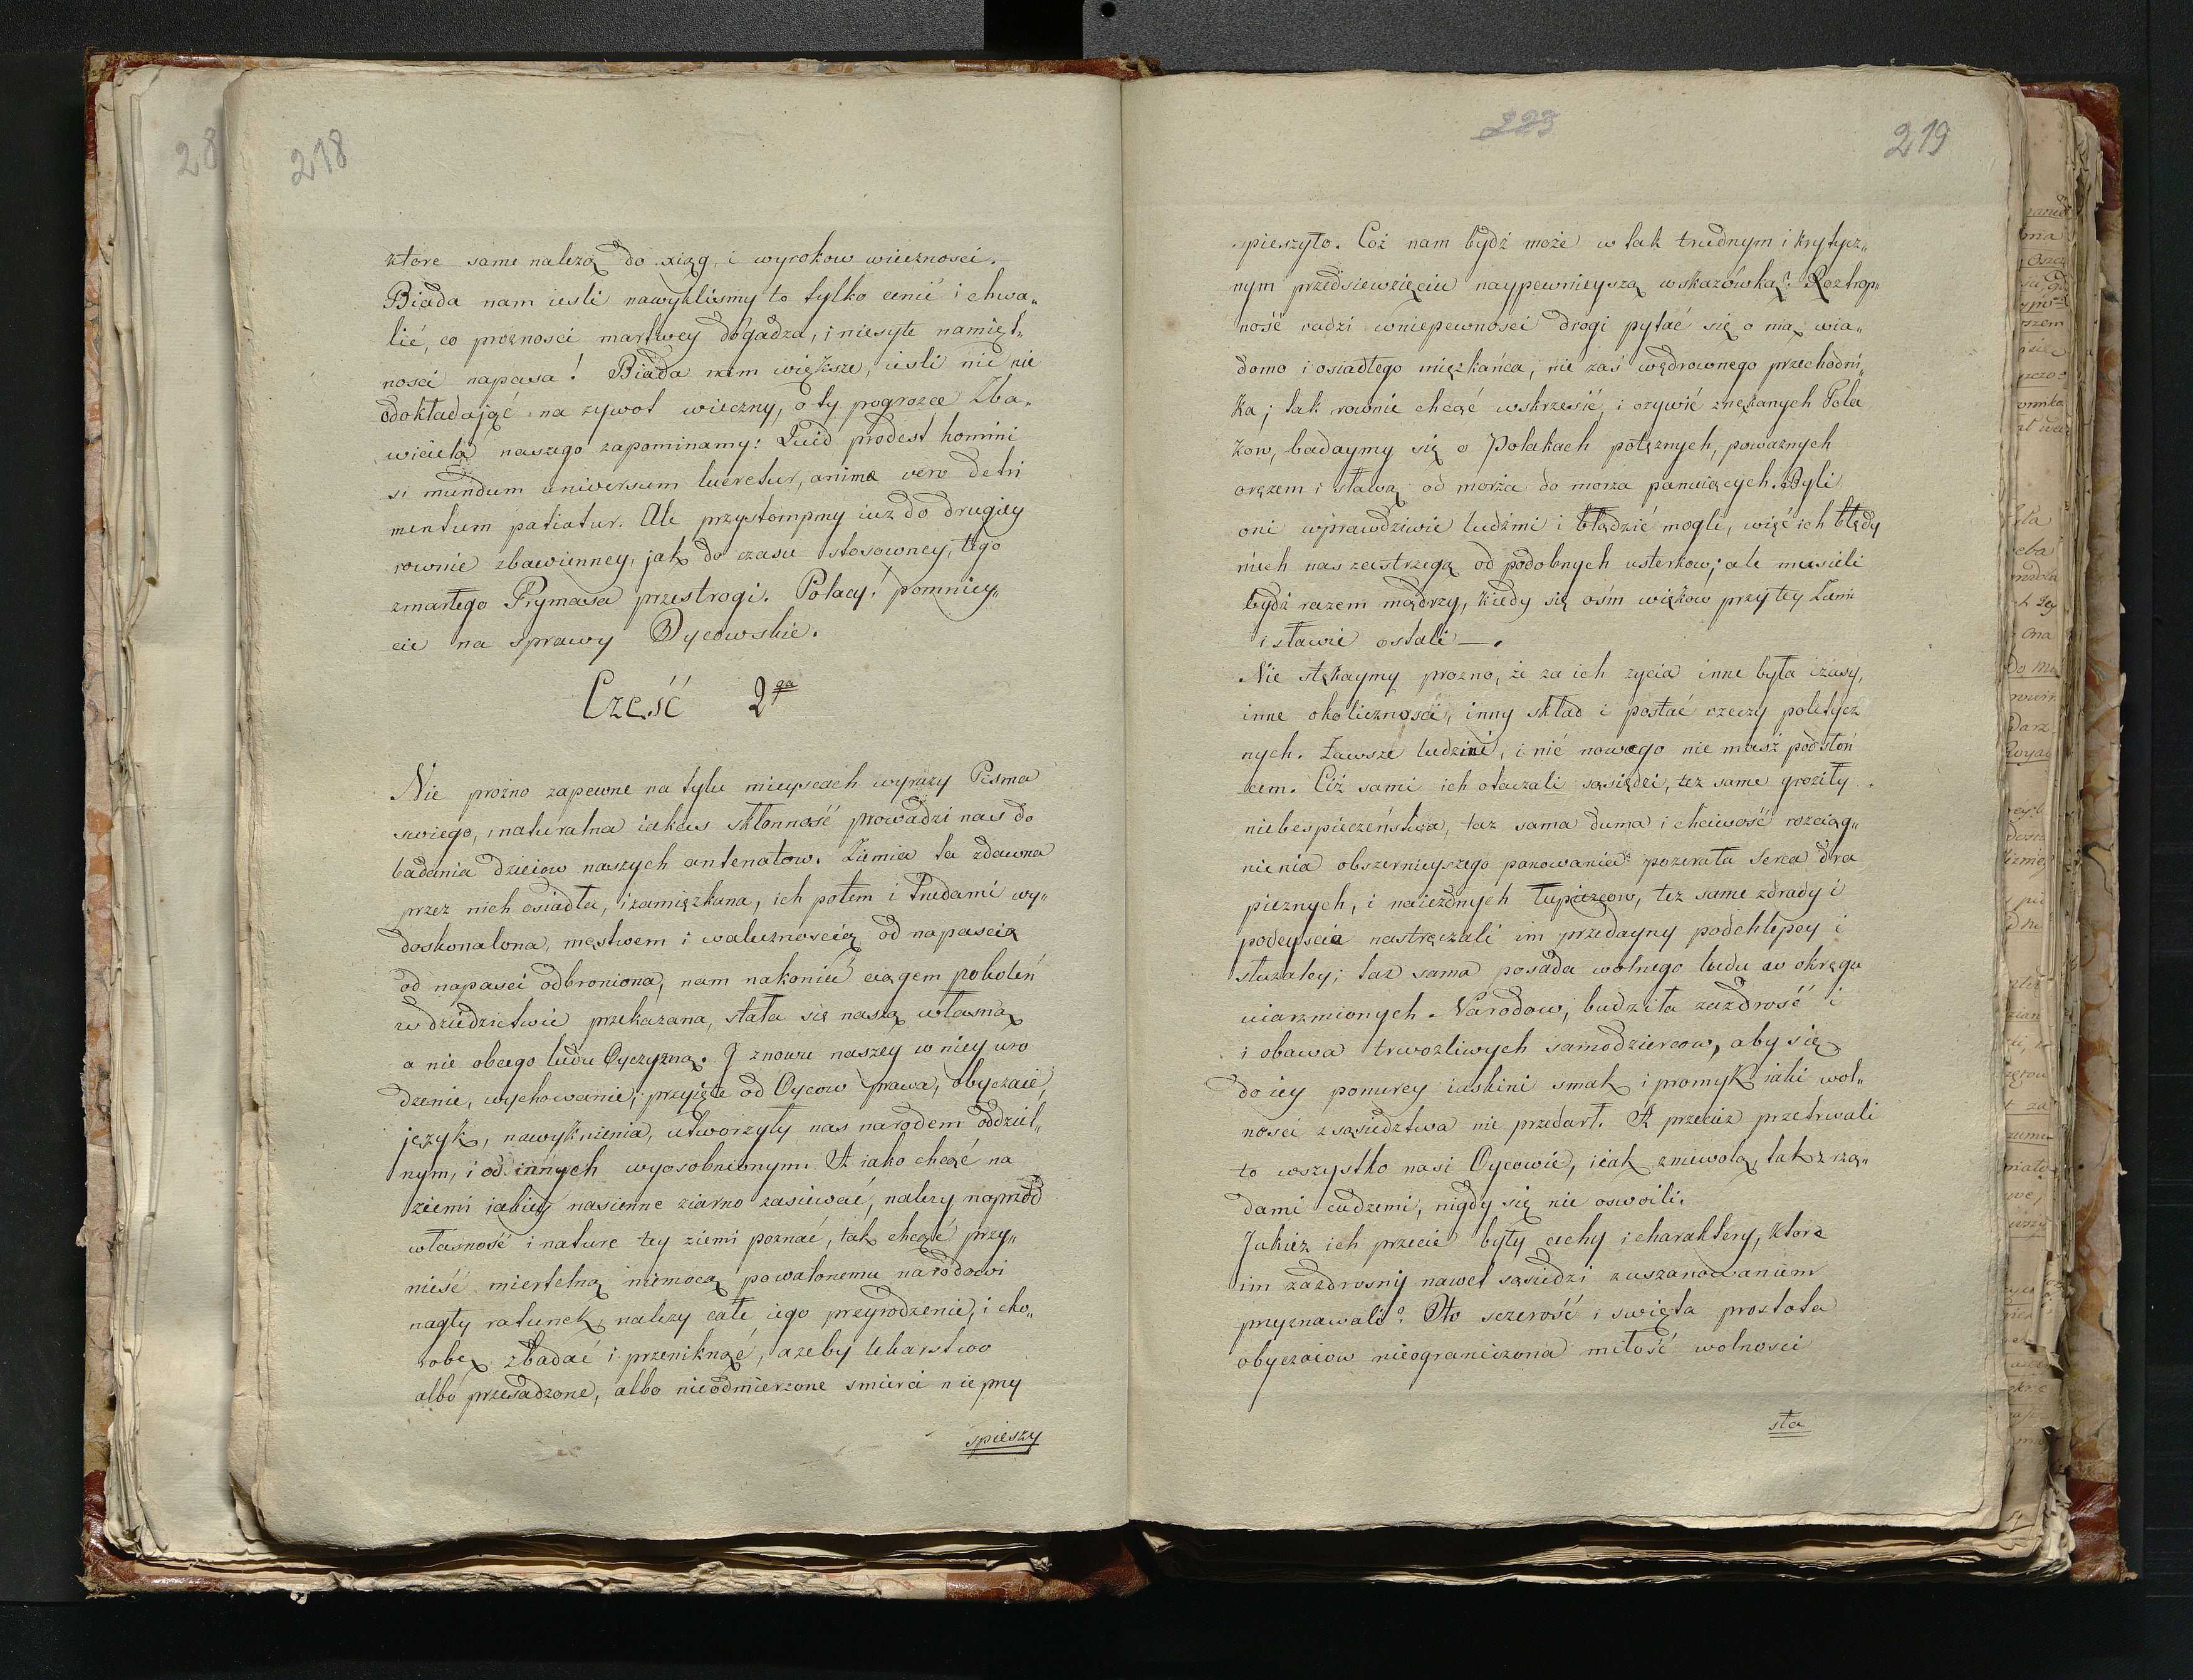 218
ktore same należą do xiąg i wyrokow wiecznosci.
Biada nam iesli nawykliśmy to tylko cenić i chwa„
lić, co proznosci martwey dogadza, i niesyte namięt„
nosci napasa! Biada nam większe, iesli nic nie
odokładająć na zywot wieczny, o tey pogrozce Zba„
wiciela naszego zapominamy: Quid prodest homini
si mundum universum lucretur, anima vero detri
mentum patiatur. Ale przystompmy iuz do drugiey
rownie zbawienney, jak do czasu stosowney, tego
zmarłego Prymasa przestrogi. Polacy! pomniey„
cie na sprawy Oycowskie.
Cześć 2ga
Nie prozno zapewne na tylu mieyscach wyrazy Pisma
swiego, i naturalna iakas skłonność prowadzi nas do
badania dzieiow naszych antenatow. Ziemia ta zdawna
przez nich osiadła, i zamięzkana, ich potem i trudami wy„
doskonalona, męstwem i walecznoscią od napascią
od napasci odbroniona, nam nakoniec ciągem pokoleń
w dziedzictwie przekazana, stała się naszą własną
a nie obcego ludu Oyczyzną. I znowu naszey w niey uro
dzenie, wychowanie, przyięte od Oycow prawa, obyczaie,
język, nawyknienia, utworzyły nas narodem oddziel„
nym, i od innych wyosobnionym. A iako chcąć na
ziemi iakiey nasienne ziarno zasiewać, nalezy naprzód
własność i naturę tey ziemi poznać, tak chcąć przy„
nieść miertelną niemocą powalonemu narodowi
nagły ratunek, nalezy całe iego przyrodzenie, i cho„
robę zbadać i przeniknąć, azeby lekarstwo
albo przesadzone, albo nieodmierzone smierci nie przy
spieszy
223
219
spieszyło. Coż nam bydź może w tak trudnym i krytycz„
nym przedsiewzięciu naypewnieyszą wskazówką? Roztrop„
ność radzi w niepewnosci drogi pytać się o nią wia„
domo i osiadłego mięzkańca, nie zaś wędrownego przechodni„
ka; tak rownie chcąć wskrzesić i ozywić znękanych Pola
kow, badaymy się o Polakach potęznych, powaznych
oręzem i sławą od morza do morza panuiących. Byli
oni wprawdziwie ludźmi i błądzić mogli, więć ich błędy
niech nas zestrzegą od podobnych usterkow; ale musieli
bydź razem mądrzy, kiedy się ośm więkow przy tey Ziemi
i sławie ostali —.
Nie stękaymy prozno, że za ich zycia inne była czasy,
inne okoliczności, inny skład i postać rzeczy politycz
nych. Zawsze ludzie, i nić nowego nie masz pod słoń
cem. Ciż sami ich otaczali sąsiędzi, tez same groziły
niebespieczeństwa, taz sama duma i chciwość rozciąg„
nienia obszernieyszego panowania pozerała serca dra
pieznych, i naiezdnych łupiezcow, tez same zdrady i
podeyscia nastręczali im przedayny podchlepcy i
słuzalcy; taz sama posada wolnego ludu w okręgu
uiarzmionych. Narodow, budziła zazdrość i
i obawa trwozliwych samodziercow, aby się
do iey ponurey iaskini smak i promyk iaki wol„
nosci z sąsiedztwa nie przedarł. A przeciez przetrwali
to wszystko nasi Oycowie, i iak z niewolą, tak z rzą„
dami cudzemi, nigdy się nie oswoili.
Jakiez ich przecie były cechy i charaktery, ktore
im zazdrosnij nawet sąsiedzi z uszanowaniem
przyznawali? Oto sczerość i swięta prostota
obyczaiow nieograniczona miłość wolnosci
sta